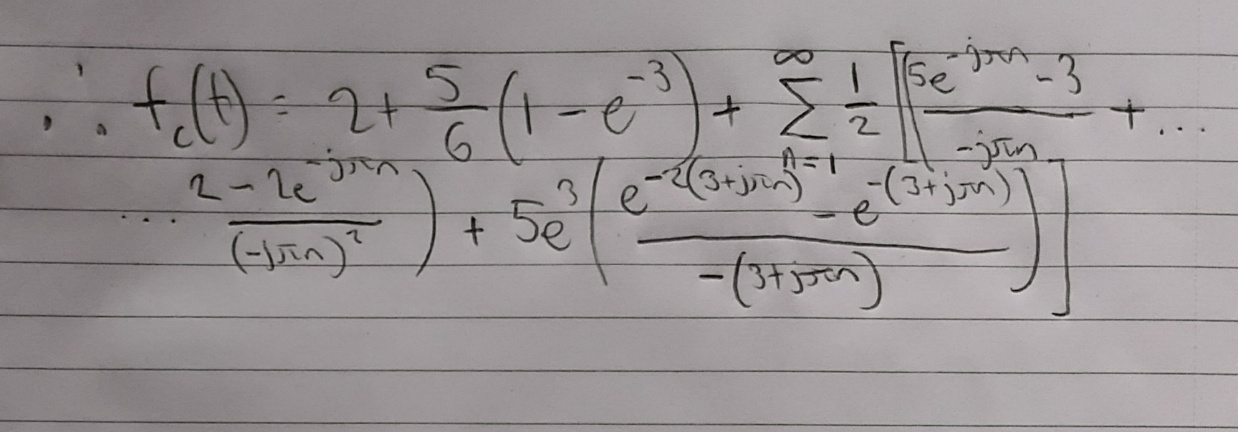 ∴ f_c(t) = 2 + \frac{5}{6}(1 - e^{-3}) + \sum_{n=1}^{\infty} \frac{1}{2} [ ( \frac{5e^{-jπn} - 3}{-jπn} + ...
... \frac{2 - 2e^{-jπn}}{(-jπn)^2} ) + 5e^3 ( \frac{e^{-2(3+jπn)} - e^{-(3+jπn)}}{-(3+jπn)} ) ]